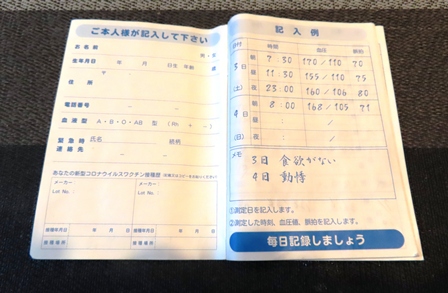 ご本人様が記入して下さい
お名前
男・女
生年月日 年 月 日生 年齢 歳
〒
住所
電話番号 － －
血液型 A・B・O・AB 型 (Rh. + －)
緊急時 氏名 続柄
連絡先 － －
あなたの新型コロナウイルスワクチン接種歴
メーカー メーカー
Lot No. Lot No.
接種年月日 年 月 日 接種年月日 年 月 日
接種場所 接種場所
記入例
日付 時間 血圧 脈拍
3 朝 7:30 170/110 70
日 昼 11:30 155/110 75
(土) 夜 23:00 160/106 80
4 朝 8:00 168/105 71
日 昼 : /
(日) 夜 : /
メモ
3日 食欲がない
4日 動悸
①測定日を記入します。
②測定した時刻、血圧値、脈拍を記入します。
毎日記録しましょう